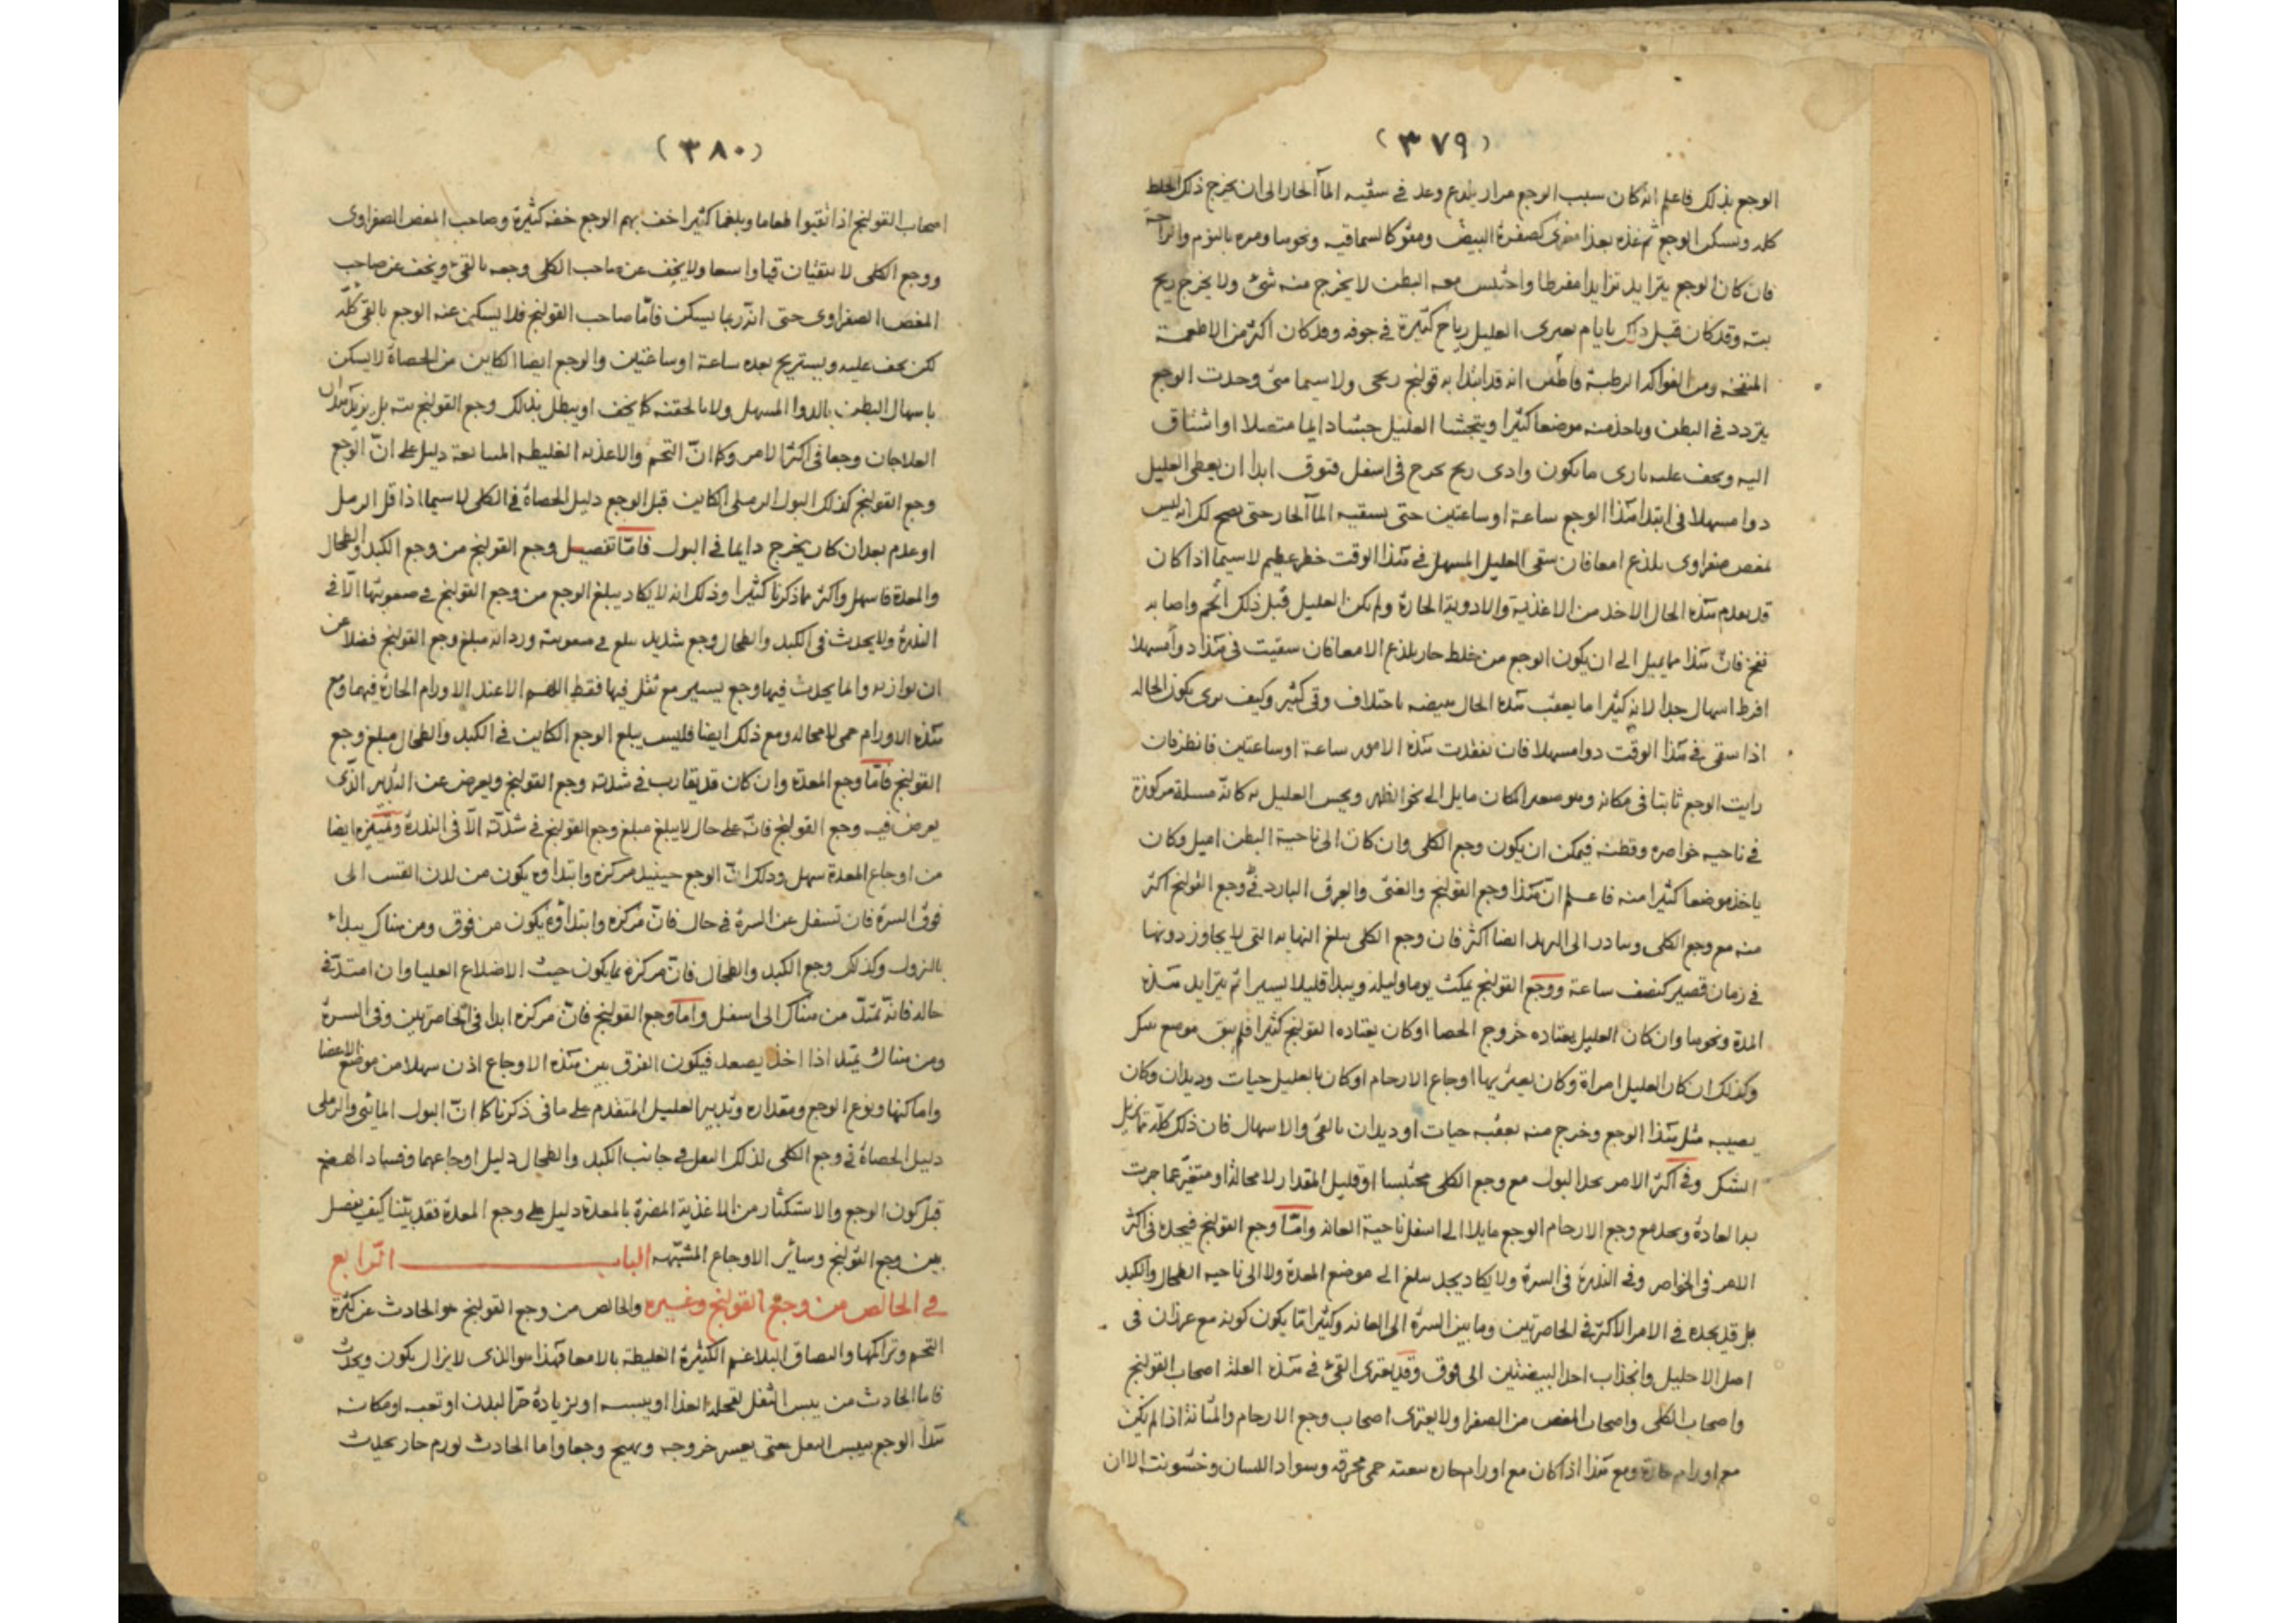 (٣٧٩)
الوجع بذلك فاعلم انه كان سبب الوجع مرار يلذع وعد في سقيه المآ الحار الى ان يخرج ذلك الخلط
كله ويسكن الوجع ثم غذه بعذا مغرى كصفرة البيض ومقو كالسماقيه ونحوها ومره بالنوم والراحة
فان كان الوجع يتزايد تزايدا مفرطا واحتبس معه البطن لا يخرج منه شئ ولا يخرج ريح
بته وقد كان قبل ذلك بايام يعترى العليل رياح كثيرة في جوفه وقد كان اكثر من الاطعمة
المنفخه ومن الفواكه الرطبة فاطن انه قد ابتدا به قولنج ريحى ولا سيما متى وجدت الوجع
يتردد في البطن وياخذ منه موضعا كثيرا ويتجشا العليل جشاء دايما متصلا او اشتاق
اليه ويخف عليه بارى ما يكون وادى ريح يخرج في اسفل فتوق ابدا ان يعطى العليل
دوا مسهلا في ابتدا هذا الوجع ساعة او ساعتين حتى يسقيه المآ الحار حتى يصح لك انه ليس
لمغص صفراوى يلذع امعا فان سقى العليل المسهل في هذا الوقت خطر عظيم لا سيما اذا كان
قد يعدم هذه الحال الاخذ من الاغذية والادوية الحارة ولم يكن العليل قبل ذلك اتخم واصابه
نفخ فان هذا مما يميل الى ان يكون الوجع من خلط حار يلذع الامعا فان سقيت في هذا دوا مسهلا
افرط اسهال جدا لانه كثيرا ما يعقب هذه الحال هيضه باختلاف وقى كثير وكيف ترى يكون الحاله
اذا سقى في هذا الوقت دوا مسهلا فان تفقدت هذه الامور ساعة او ساعتين فانظر فان
رايت الوجع ثابتا في مكانه وموضعه المكان مايل الى نحو الظهر ويحس العليل به كانه مسلة مركوزة
في ناحيه خواصره وقطنه فيمكن ان يكون وجع الكلى وان كان الى ناحية البطن اميل وكان
ياخذ موضعا كثيرا منه فاعلم ان هذا وجع القولنج والغثى والعرق البارد في وجع القولنج اكثر
منه مع وجع الكلى ويبادر الى البرد ايضا اكثر فان وجع الكلى يبلغ النهايه التى لا يجاوز دونها
في زمان قصير كنصف ساعة ووجع القولنج يمكث يوما وليله ويبدا قليلا يسيرا ثم يتزايد هذه
المدة ونحوها وان كان العليل يعتاده خروج الحصا او كان يعتاده القولنج كثيرا فلم يبق موضع شك
وكذلك ان كان العليل امراة وكان يعتريها اوجاع الارحام او كان بالعليل حيات وديدان وكان
يصيبه مثل هذا الوجع وخرج منه بعقبه حيات او ديدان بالقئ والاسهال فان ذلك كله مما يزيل
الشك وفي اكثر الامر يجد البول مع وجع الكلى محتبسا او قليل المقدار لا محالة او متغير عما جرت
به العادة ويجد مع وجع الارحام الوجع مايلا الى اسفل ناحية العانه وامّا وجع القولنج فيجده في اكثر
الامر في الخواصر وفي الندرة في السرة ولا يكاد يجد يبلغ الى موضع المعدة ولا الى ناحيه الطحال والكبد
بل قد يجده في الامر الاكثر في الخاصرتين وما بين السرة الى العانه وكثيرا مّا يكون كونه مع عرذان في
اصل الاحليل وانجذاب احد البيضتين الى فوق وقد يعترى القئ في هذه العلة اصحاب القولنج
واصحاب الكلى واصحاب المغص من الصفرا ولا يعترى اصحاب وجع الارحام والمثانة اذا لم يكن
مع اورام حارة ومع هذا اذا كان مع اورام حاره معته حمى محرقه وسواد اللسان وخشونته الا ان
(٣٨٠)
اصحاب القولنج اذا تقيوا طعاما وبلغما كثيرا خف بهم الوجع خفه كثيرة وصاحب المغص الصفراوى
ووجع الكلى لا يتقيئان قيا واسعا ولا يخف عن صاحب الكلى وجعه بالقئ ويخف عن صاحب
المغص الصفراوى حتى انه ربما يسكن فامّا صاحب القولنج فلا يسكن عنه الوجع بالقى كلّه
لكن يخف عليه ويستريح بعده ساعة او ساعتين والوجع ايضا الكاين من الحصاة لا يسكن
باسهال البطن بالدوا المسهل ولا بالحقنه كما يخف او يبطل بذلك وجع القولنج بته بل يزيد هذان
العلاجان وجعا في اكثر الامر وكما انّ التخم والاغذيه الغليظه المسابعة دليل على انّ الوجع
وجع القولنج كذلك البول الرملى الكاين قبل الوجع دليل الحصاة في الكلى لا سيما اذا قل الرمل
او عدم بعد ان كان يخرج دايما في البول فامّا تفصيل وجع القولنج من وجع الكبد والطحال
والمعدة فاسهل واكثر مما ذكرنا كثيرا وذلك انه لا يكاد يبلغ الوجع من وجع القولنج في صعوبتها الّا في
الندرة ولا يحدث في الكبد والطحال وجع شديد يبلغ في صعوبته وردانه مبلغ وجع القولنج فضلا عن
ان يوازيه وانما يحدث فيها وجع يسير مع ثقل فيها فقط اللهم الا عند الاورام الحارة فيهما ومع
هذه الاورام حمى لا محاله ومع ذلك ايضا فليس يبلغ الوجع الكاين في الكبد والطحال مبلغ وجع
القولنج فامّا وجع المعدة وان كان قد يقارب في شدته وجع القولنج ويعرض عن التدبير الذّى
يعرض فيه وجع القولنج فانّه على حال لا يبلغ مبلغ وجع القولنج في شدّته الّا في الندرة وتمييزه ايضا
من اوجاع المعدة سهل وذلك انّ الوجع حينيذ مركزه وابتداوه يكون من لدن القس الى
فوق السرة فان تسفل عن السرة في حال فانّ مركزه وابتداؤه يكون من فوق ومن هناك يبداء
بالنزول وكذلك وجع الكبد والطحال فانّ مركزه مما يكون حيث الاضلاع العليا وان امتدّ في
حاله فانه تمتدّ من هناك الى اسفل وامّا وجع القولنج فانّ مركزه ابدا في الخاصرتين وفي السرة
ومن هناك يمتد اذا اخذ يصعد فيكون الفرق بين هذه الاوجاع اذن سهلا من موضع الاعضا
واماكنها ونوع الوجع ومقداره وتدبير العليل المتقدم على ما في ذكرنا كما انّ البول المائى والرملى
دليل الحصاة في وجع الكلى لذلك الثقل في جانب الكبد والطحال دليل اوجاعهما وفساد الهضم
قبل كون الوجع والاستكثار من الاغذية المضرة بالمعدة دليل على وجع المعدة فقد بيّنا كيف يفصل
بين وجع القولنج وسائر الاوجاع المشبّهه الباب الرّابع
في الخالص من وجع القولنج وغيره والخالص من وجع القولنج هو الحادث عن كثرة
التخم وتراكمها والتصاق البلاغم الكثيرة الغليظة بالامعا فهذا هو الذى لا يزال يكون ويحدث
فاما الحادث من يبس الثفل لقحله الغذا او يبسه او بزيادة حرّ البدن او تعب او مكانه
هذا الوجع يبس الثفل حتى يعسر خروجه ويهيج وجعا واما الحادث لورم حار يحدث